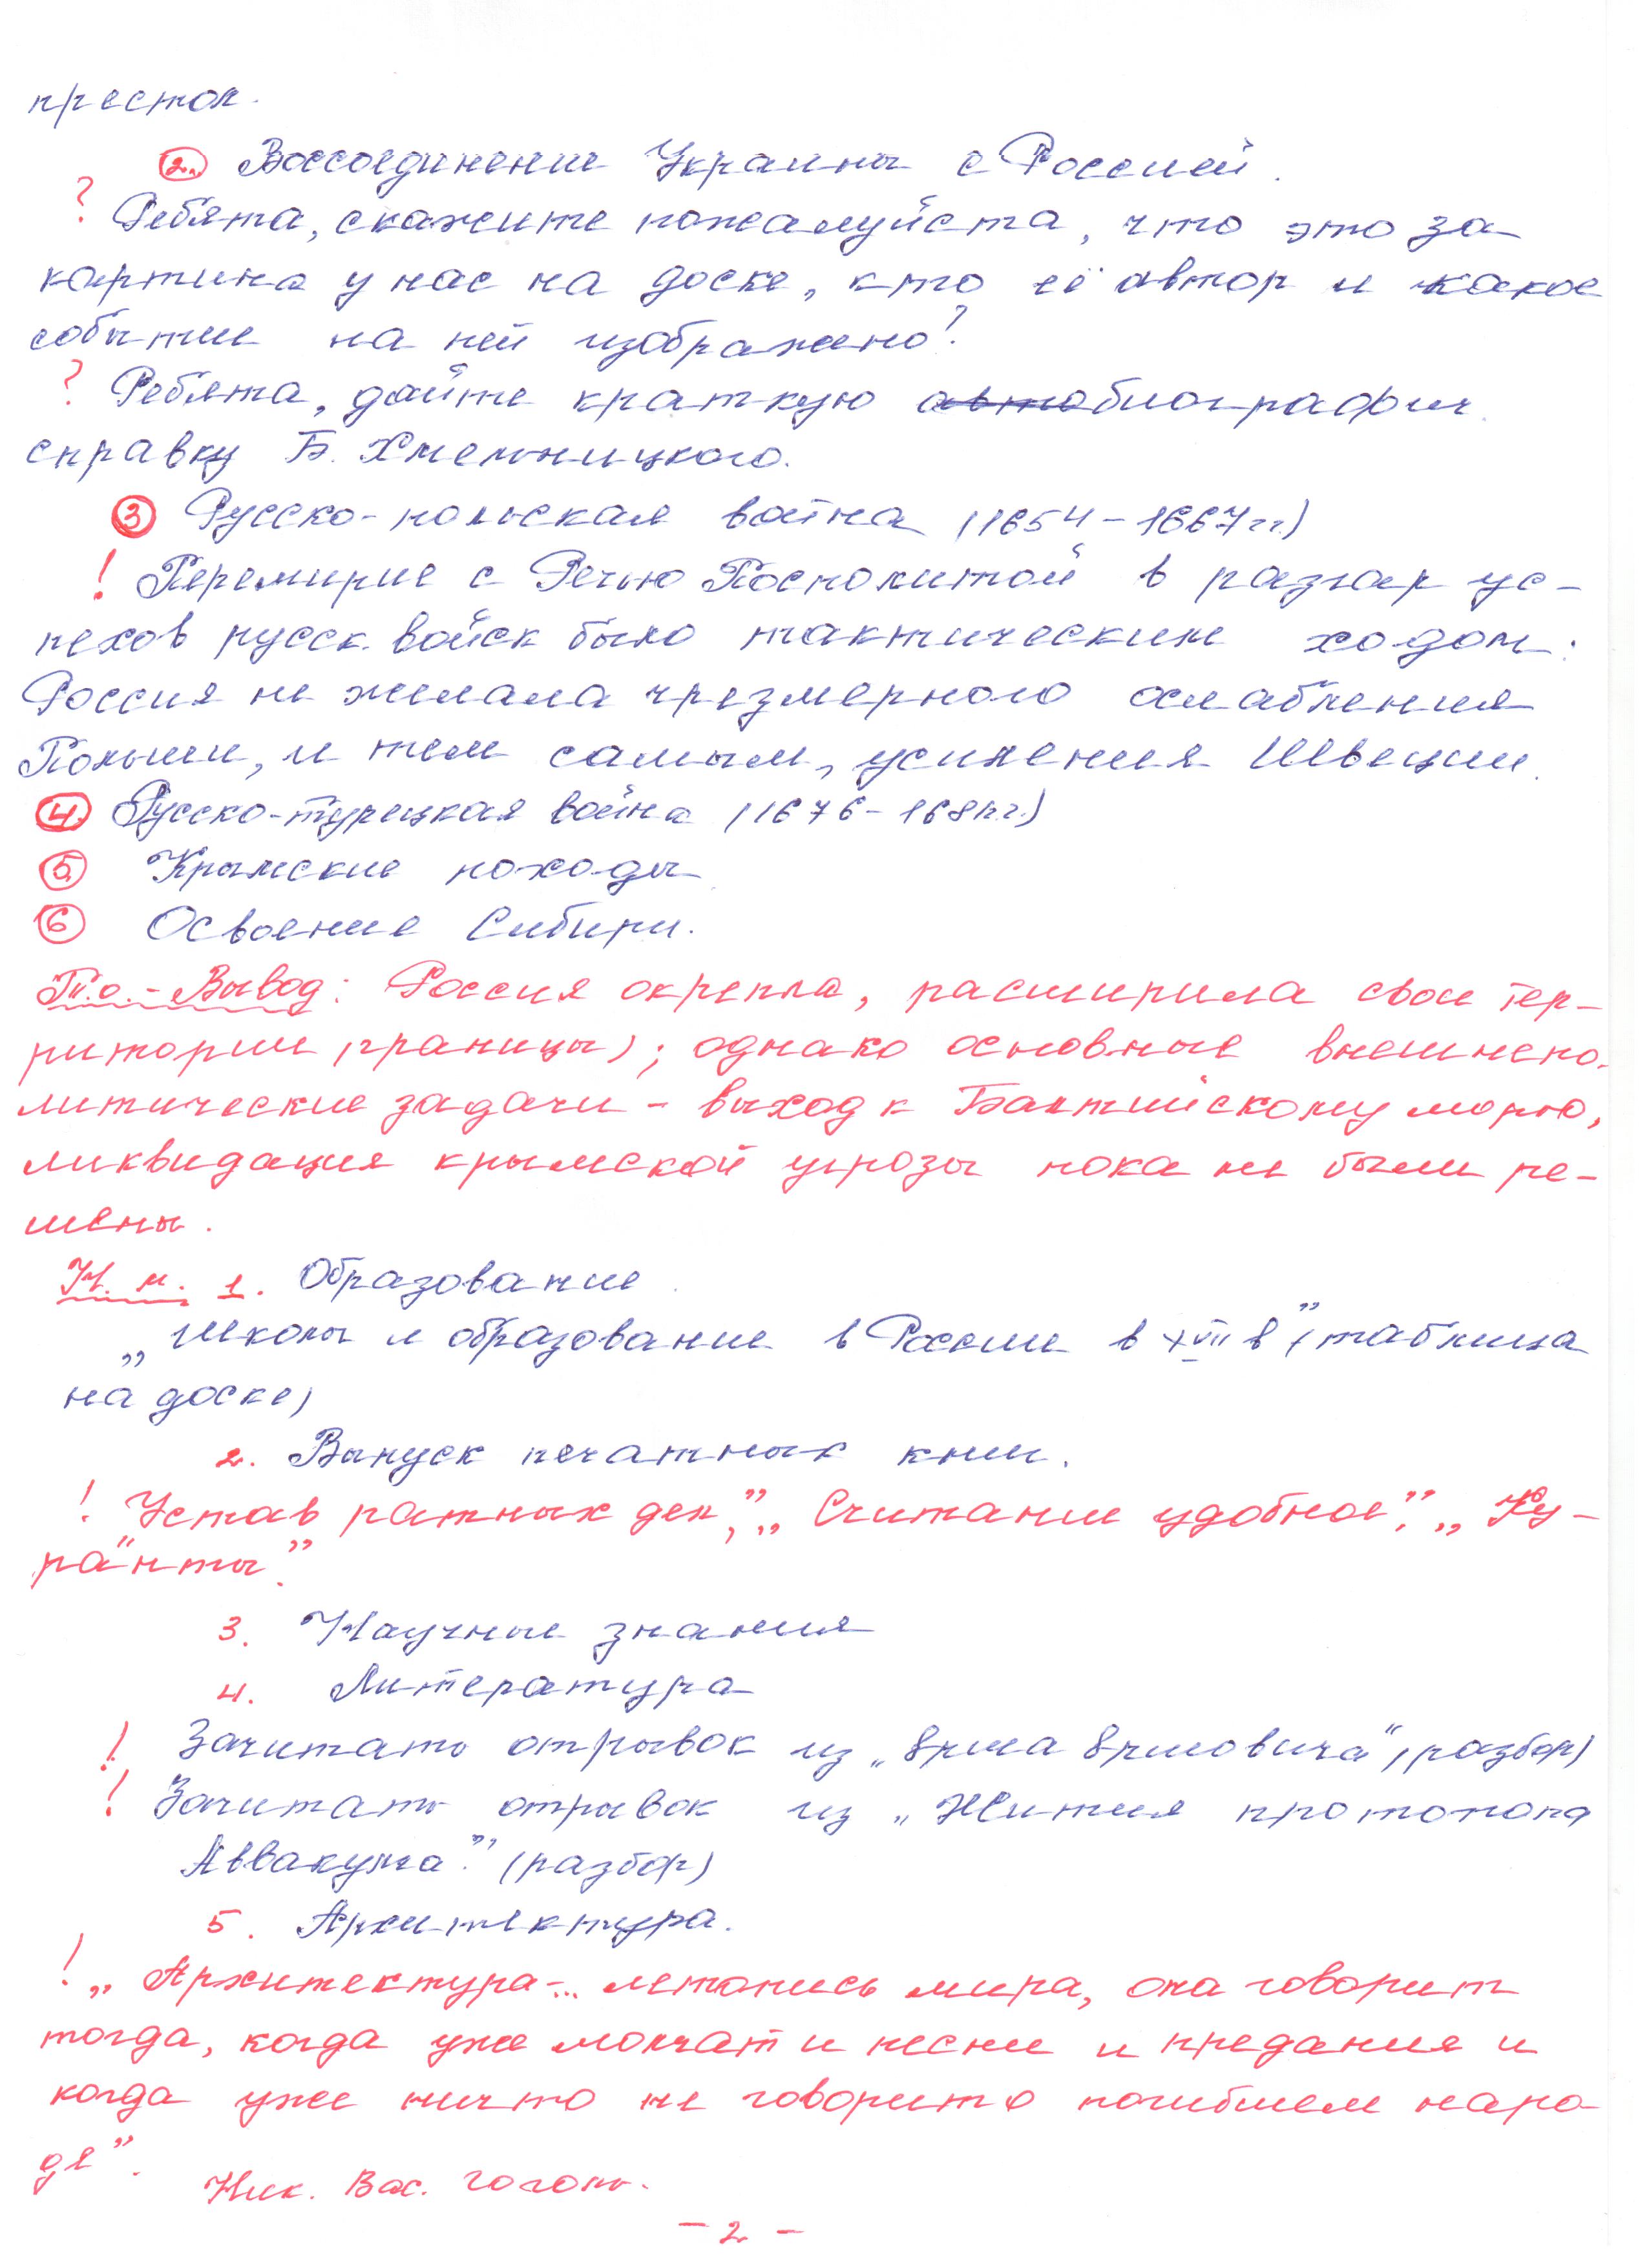 престол.
2. Воссоединение Украины с Россией.
? Ребята, скажите пожалуйста, что это за
картина у нас на доске, кто её автор и какое
событие на ней изображено?
? Ребята, дайте краткую автобиографич.
справку Б. Хмельницкого.
3 Русско-польская война (1654-1667 гг)
! Перемирие с Речью Посполитой в разгар ус-
пехов русск. войск было тактическим ходом:
Россия не желала чрезмерного ослабления
Польши, и тем самым, усиления Швеции.
4. Русско-турецкая война (1676-1681 гг.)
5. Крымские походы
6 Освоение Сибири.
Т.о.-Вывод: Россия окрепла, расширила свои тер-
ритории (границы); однако основные внешнепо-
литические задачи - выход к Балтийскому морю,
ликвидация крымской угрозы пока не были ре-
шены.
И. м. 1. Образование
„Школы и образование в России в XVII в” (таблица
на доске)
2. Выпуск печатных книг.
! „Устав ратных дел”, „Считание удобное”, „Ку-
ранты”.
3. Научные знания
4. Литература
! Зачитать отрывок из „Ерша Ершовича” (разбор)
! Зачитать отрывок из „Жития протопопа
Аввакума”. (разбор)
5. Архитектура.
! „Архитектура-... летопись мира, она говорит
тогда, когда уже молчат и песни и предания и
когда уже ничто не говорит о погибшем наро-
де”.
Ник. Вас. Гоголь.
- 2 -